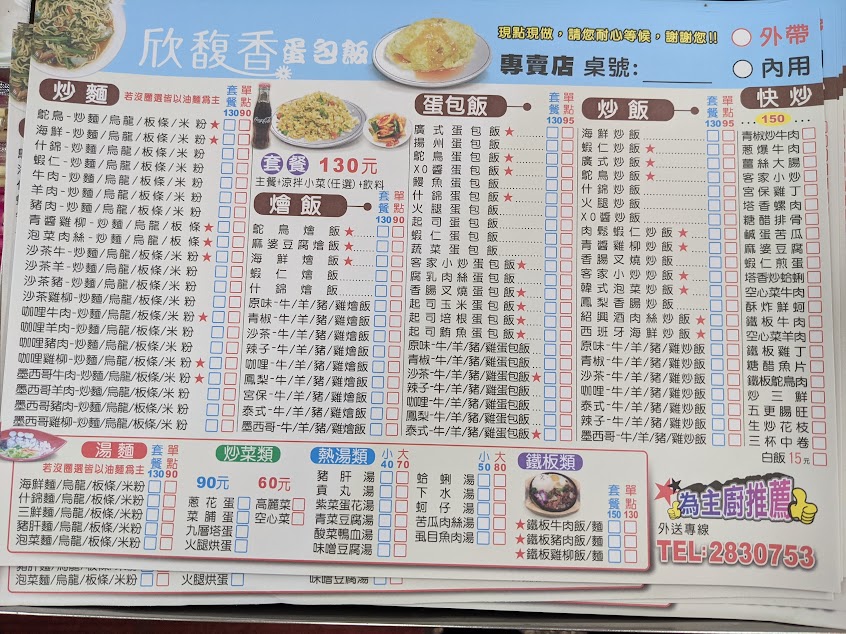 欣馥香蛋包飯
現點現做，請您耐心等候，謝謝您!!
專賣店 桌號:
外帶
內用
炒麵
若沒圈選皆以油麵為主
套餐130 單點90
鴕鳥-炒麵/烏龍/板條/米粉★
海鮮-炒麵/烏龍/板條/米粉★
什錦-炒麵/烏龍/板條/米粉
蝦仁-炒麵/烏龍/板條/米粉
牛肉-炒麵/烏龍/板條/米粉
羊肉-炒麵/烏龍/板條/米粉
豬肉-炒麵/烏龍/板條/米粉
青醬雞柳-炒麵/烏龍/板條★
泡菜肉絲-炒麵/烏龍/板條★
沙茶牛-炒麵/烏龍/板條/米粉★
沙茶羊-炒麵/烏龍/板條/米粉
沙茶豬-炒麵/烏龍/板條/米粉
沙茶雞柳-炒麵/烏龍/板條/米粉
咖哩牛肉-炒麵/烏龍/板條/米粉★
咖哩羊肉-炒麵/烏龍/板條/米粉
咖哩豬肉-炒麵/烏龍/板條/米粉
咖哩雞柳-炒麵/烏龍/板條/米粉★
墨西哥牛肉-炒麵/烏龍/板條/米粉★
墨西哥羊肉-炒麵/烏龍/板條/米粉
墨西哥豬肉-炒麵/烏龍/板條/米粉
墨西哥雞柳-炒麵/烏龍/板條/米粉
套餐 130元
主餐+涼拌小菜(任選)+飲料
燴飯
套餐130 單點90
鴕鳥燴飯★
麻婆豆腐燴飯★
海鮮燴飯★
蝦仁燴飯
什錦燴飯
原味-牛/羊/豬/雞燴飯
青椒-牛/羊/豬/雞燴飯
沙茶-牛/羊/豬/雞燴飯
辣子-牛/羊/豬/雞燴飯
咖哩-牛/羊/豬/雞燴飯
鳳梨-牛/羊/豬/雞燴飯
宮保-牛/羊/豬/雞燴飯
泰式-牛/羊/豬/雞燴飯
墨西哥-牛/羊/豬/雞燴飯
蛋包飯
套餐130 單點95
廣式蛋包飯★
揚州蛋包飯
鴕鳥蛋包飯★
XO醬蛋包飯★
鰻魚蛋包飯
什錦蛋包飯★
火腿蛋包飯
起司蛋包飯
蝦仁蛋包飯
蔬菜蛋包飯
客家小炒蛋包飯★
腐乳肉絲蛋包飯
香腸叉燒蛋包飯★
起司玉米蛋包飯★
起司培根蛋包飯★
起司鮪魚蛋包飯★
原味-牛/羊/豬/雞蛋包飯
青椒-牛/羊/豬/雞蛋包飯
沙茶-牛/羊/豬/雞蛋包飯★
辣子-牛/羊/豬/雞蛋包飯
咖哩-牛/羊/豬/雞蛋包飯
鳳梨-牛/羊/豬/雞蛋包飯
泰式-牛/羊/豬/雞蛋包飯★
炒飯
套餐130 單點95
海鮮炒飯
蝦仁炒飯★
廣式炒飯★
鴕鳥炒飯★
什錦炒飯
火腿炒飯
XO醬炒飯
肉鬆蝦仁炒飯★
青醬雞柳炒飯★
香腸叉燒炒飯
客家小炒炒飯★
韓式泡菜炒飯★
鳳梨香腸炒飯
紹興酒肉絲炒飯★
西班牙海鮮炒飯★
原味-牛/羊/豬/雞炒飯
青椒-牛/羊/豬/雞炒飯
沙茶-牛/羊/豬/雞炒飯
咖哩-牛/羊/豬/雞炒飯
泰式-牛/羊/豬/雞炒飯
辣子-牛/羊/豬/雞炒飯
墨西哥-牛/羊/豬/雞炒飯
快炒
150
青椒炒牛肉
蔥爆牛肉
薑絲大腸
客家小炒
宮保雞丁
塔香螺肉
糖醋排骨
鹹蛋苦瓜
麻婆豆腐
蝦仁煎蛋
塔香炒蛤蜊
空心菜牛肉
酥炸鮮蚵
鐵板牛肉
空心菜羊肉
鐵板雞丁
糖醋魚片
鐵板鴕鳥肉
炒三鮮
五更腸旺
生炒花枝
三杯中卷
白飯15元
湯麵
若沒圈選皆以油麵為主
套餐130 單點90
海鮮麵/烏龍/板條/米粉
什錦麵/烏龍/板條/米粉
三鮮麵/烏龍/板條/米粉
豬肝麵/烏龍/板條/米粉
泡菜麵/烏龍/板條/米粉
炒菜類
90元 60元
蔥花蛋
菜脯蛋
九層塔蛋
火腿烘蛋
高麗菜
空心菜
熱湯類
小40 大70
豬肝湯
貢丸湯
紫菜蛋花湯
青菜豆腐湯
酸菜鴨血湯
味噌豆腐湯
小50 大80
蛤蜊湯
下水湯
蚵仔湯
苦瓜肉絲湯
虱目魚肉湯
鐵板類
套餐150 單點130
★鐵板牛肉飯/麵
★鐵板豬肉飯/麵
★鐵板雞柳飯/麵
★為主廚推薦
外送專線
TEL:2830753
泡菜麵/烏龍/板條/米粉
火腿烘蛋
味噌豆腐湯